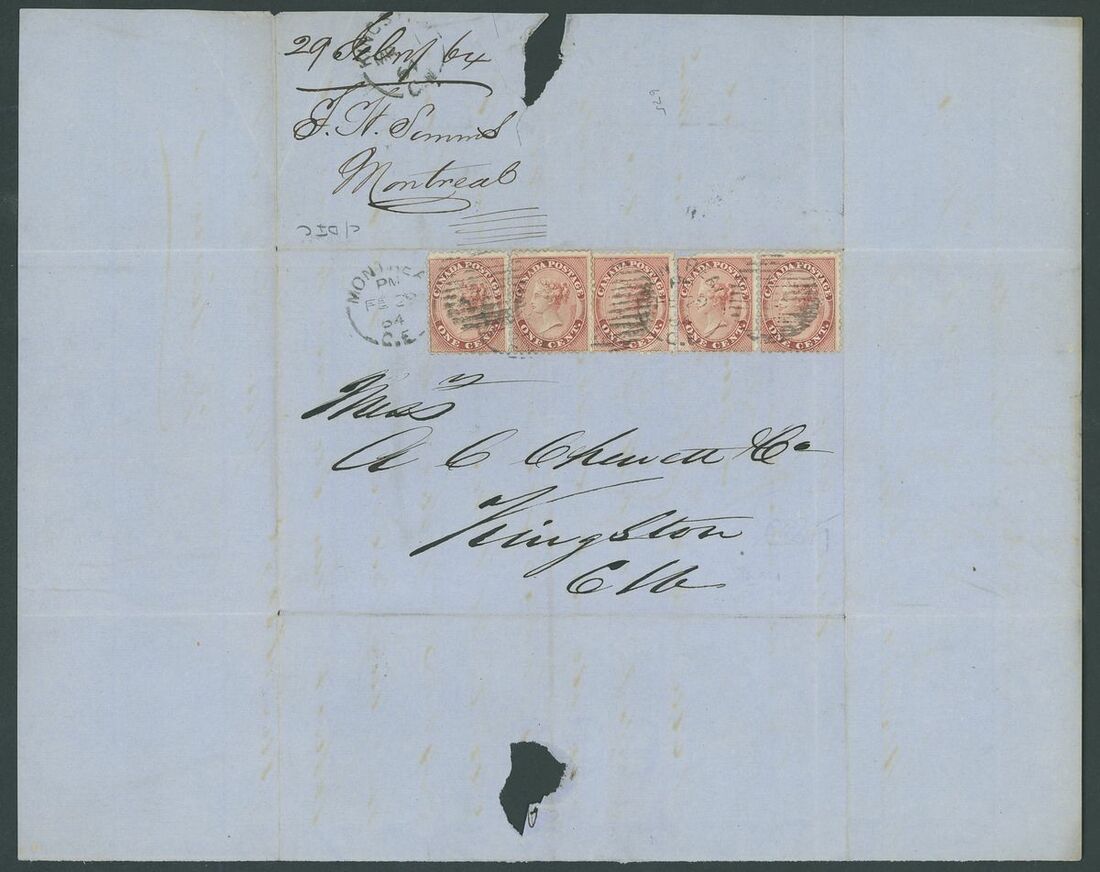 29 Feby 64
F. H. Simms
Montreal
529
MONTREAL
PM
FE 29
64
C.E
CANADA POSTAGE
ONE CENT.
CANADA POSTAGE
ONE CENT.
CANADA POSTAGE
ONE CENT.
CANADA POSTAGE
ONE CENT.
CANADA POSTAGE
ONE CENT.
Messrs
A C Chewett & Co
Kingston
C W